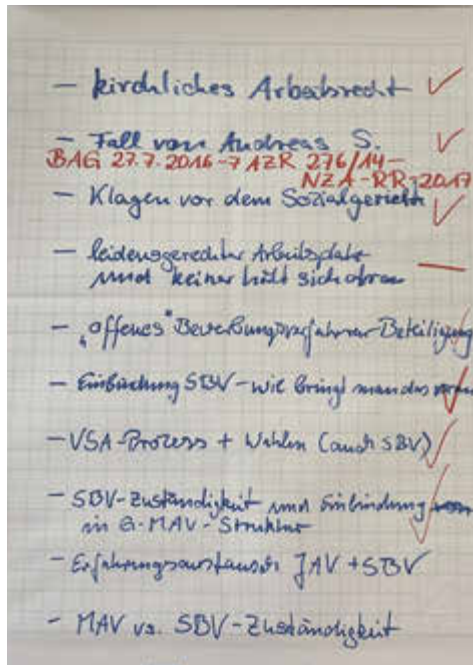 - kirchliches Arbeitsrecht
- Fall von Andreas S.
BAG 27.7.2016 - 7 AZR 276/14 -
NZA-RR-2017
- Klagen vor dem Sozialgericht
- leidensgerechter Arbeitsplatz
und keiner hält sich dran
- "offenes" Bewerbungsverfahren - Beteiligung
- Einbindung SBV - wie bringt man das
- VSA-Prozess + Wahlen (auch SBV)
- SBV-Zuständigkeit und Einbindung
in G-MAV-Struktur
- Erfahrungsaustausch JAV + SBV
- MAV vs. SBV-Zuständigkeit